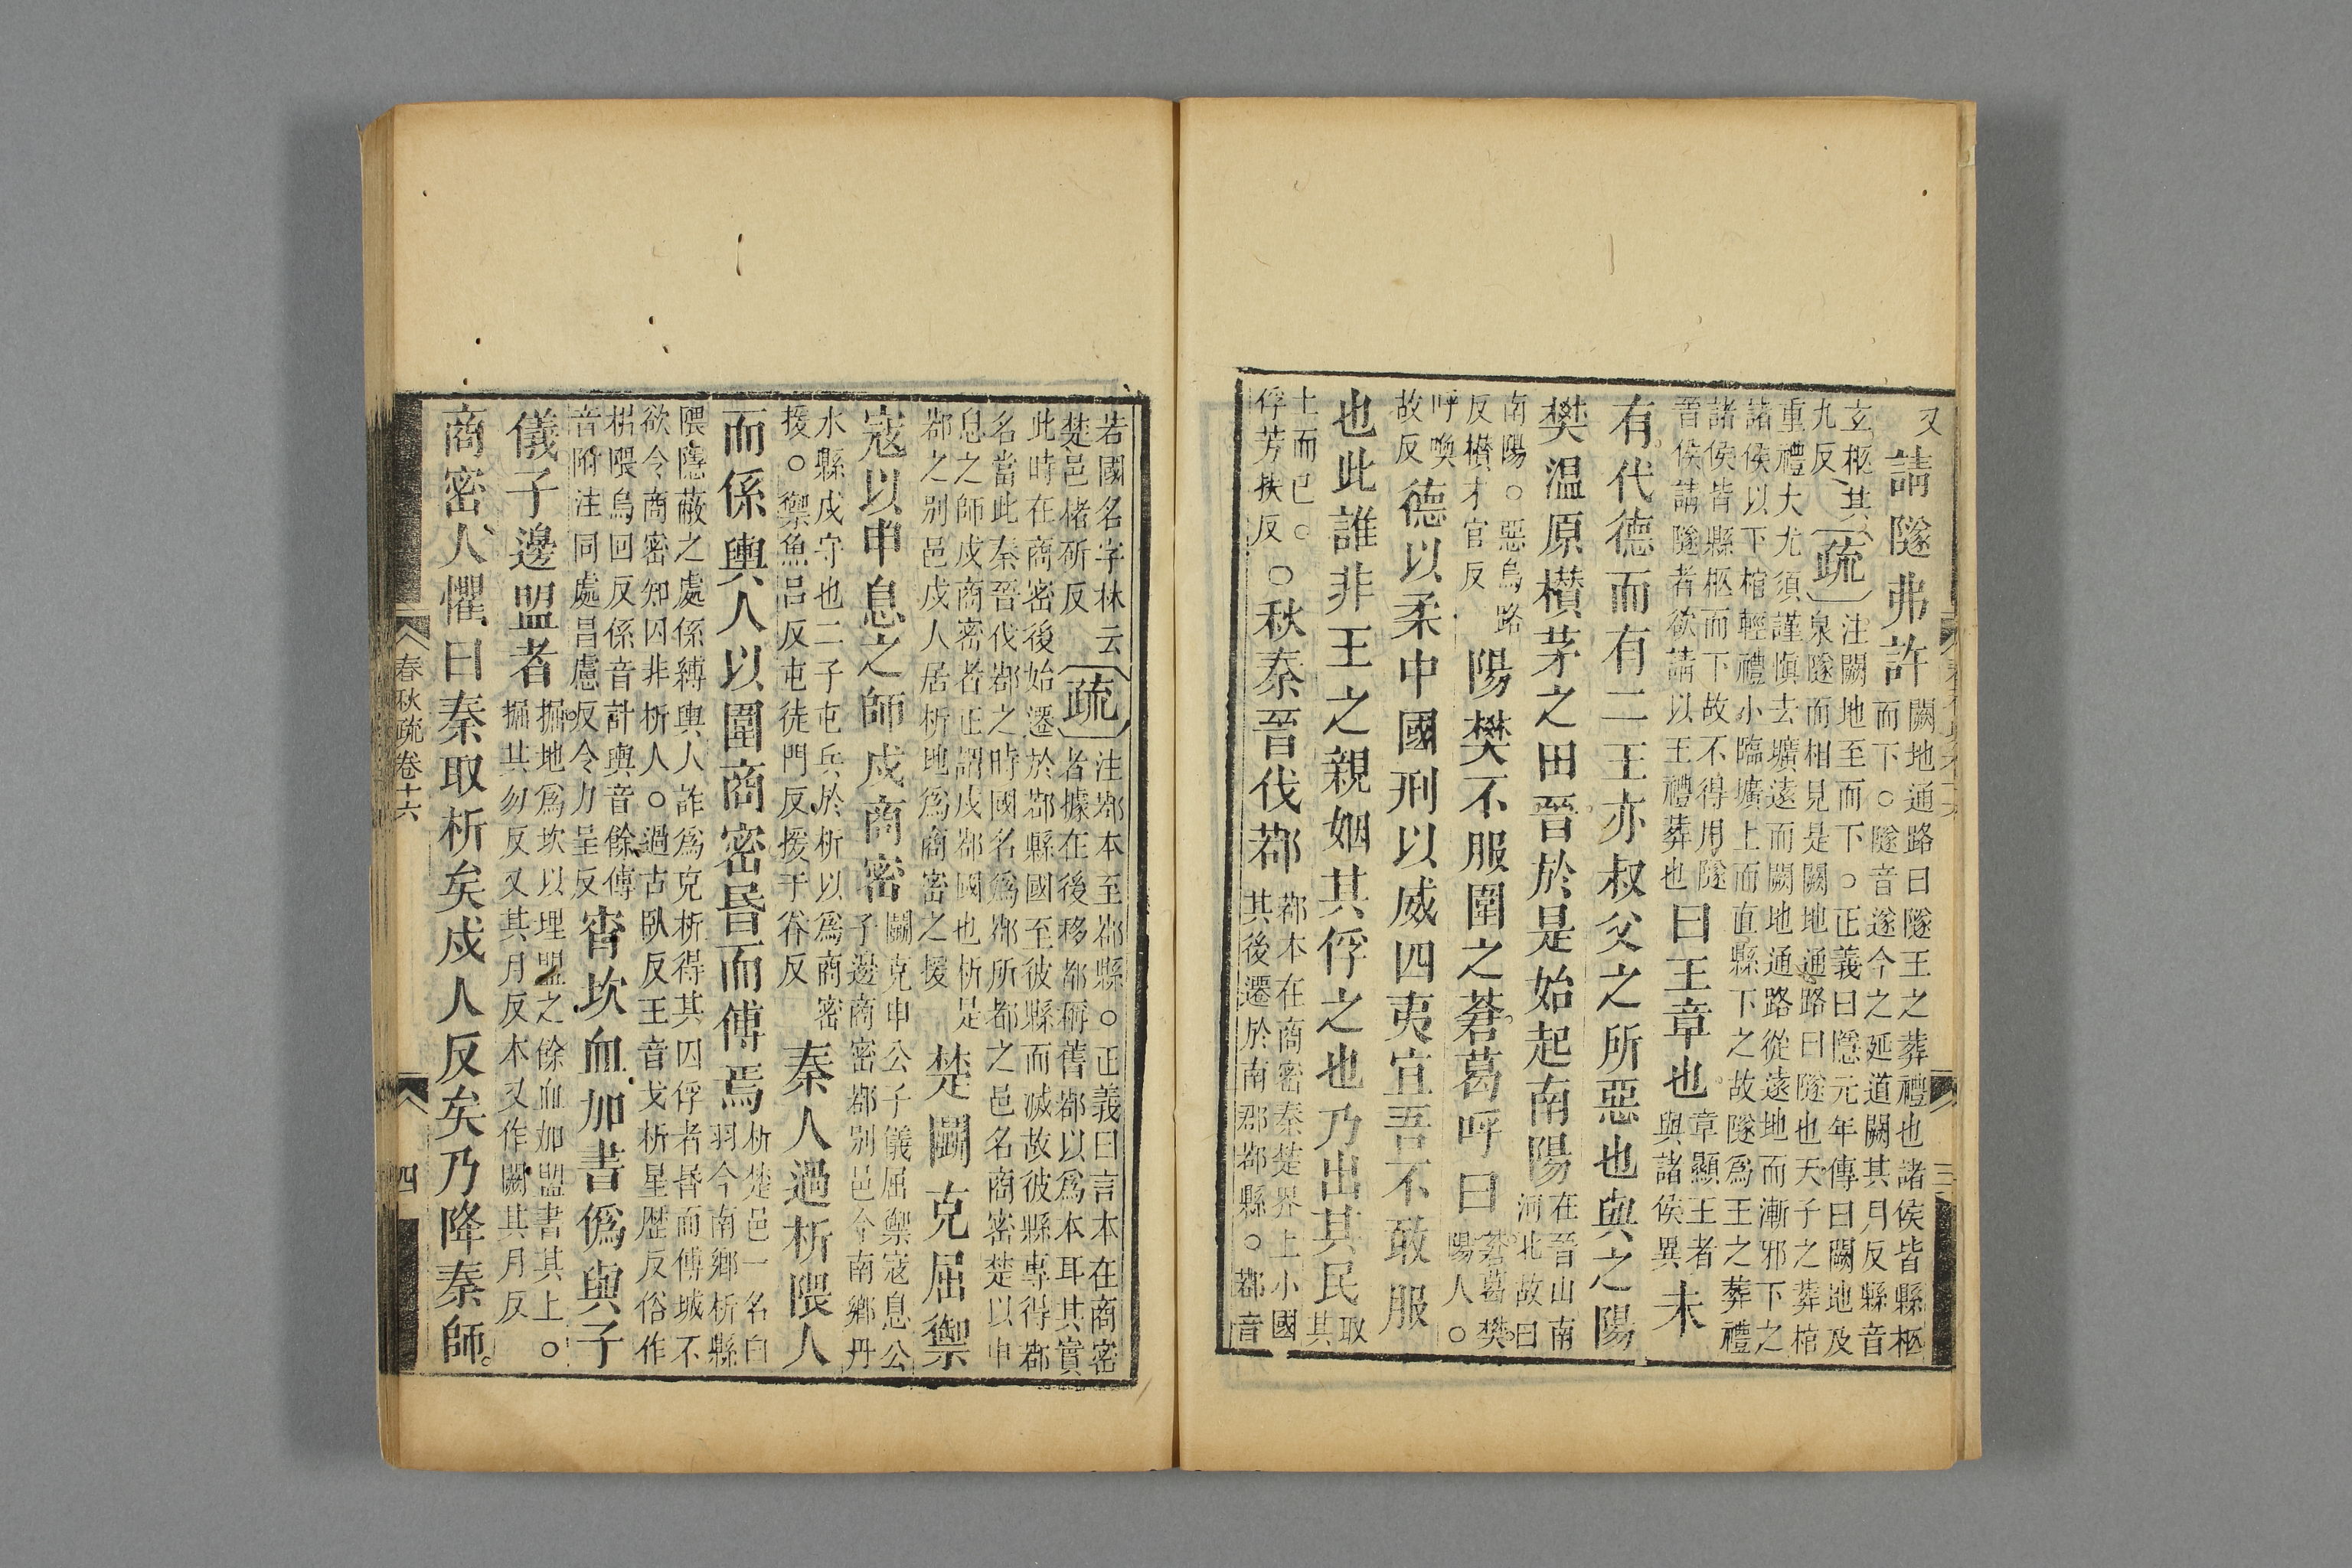 又請隧弗許闕地通路曰隧王之葬禮也諸侯皆縣柩
而下○隧音遂今之延道闕其月反縣音
玄柩其
九反疏注闕地至而下○正義曰隱元年傳曰闕地及
泉隧而相見是闕地通路曰隧也天子之葬棺
重禮大尤須謹愼去壙遠而闕地通路從遠地而漸邪下之
諸侯以下棺輕禮小臨壙上而直縣下之故隧爲王之葬禮
諸侯皆縣柩而下故不得用隧
晉侯請隧者欲請以王禮葬也曰王章也章顯王者
與諸侯異未
有代德而有二王亦叔父之所惡也與之陽
樊温原欑茅之田晉於是始起南陽在晉山南
河北故曰
南陽○惡烏路
反欑才官反陽樊不服圍之蒼葛呼曰蒼葛樊
陽人○
呼喚
故反德以柔中國刑以威四夷宜吾不敢服
也此誰非王之親姻其俘之也乃出其民取
其
土而已○
俘芳扶反○秋秦晉伐鄀鄀本在商密秦楚界上小國
其後遷於南郡鄀縣○鄀音
若國名字林云
楚邑楮斫反疏注鄀本至鄀縣○正義曰言本在商密
者據在後移都稱舊鄀以爲本耳其實
此時在商密後始遷於鄀縣國至彼縣而滅故彼縣專得鄀
名當此秦晉伐鄀之時國名爲鄀所都之邑名商密楚以申
息之師戍商密者正謂戍鄀國也析是
鄀之别邑戍人居析地爲商密之援楚鬭克屈禦
寇以申息之師戍商密鬭克申公子儀屈禦寇息公
子邊商密鄀别邑今南鄉丹
水縣戍守也二子屯兵於析以爲商密
援○禦魚呂反屯徒門反援于眷反秦人過析隈人
而係輿人以圍商密昏而傅焉析楚邑一名白
羽今南鄉析縣
隈隱蔽之處係縛輿人詐爲克析得其囚俘者昏而傅城不
欲令商密知囚非析人○過古臥反王音戈析星歷反俗作
枂隈烏回反係音計輿音餘傅
音附注同處昌慮反令力呈反宵坎血加書僞與子
儀子邊盟者掘地爲坎以埋盟之餘血加盟書其上○
掘其勿反又其月反本又作闕其月反
商密人懼曰秦取析矣戍人反矣乃降秦師
春秋疏卷十六
四